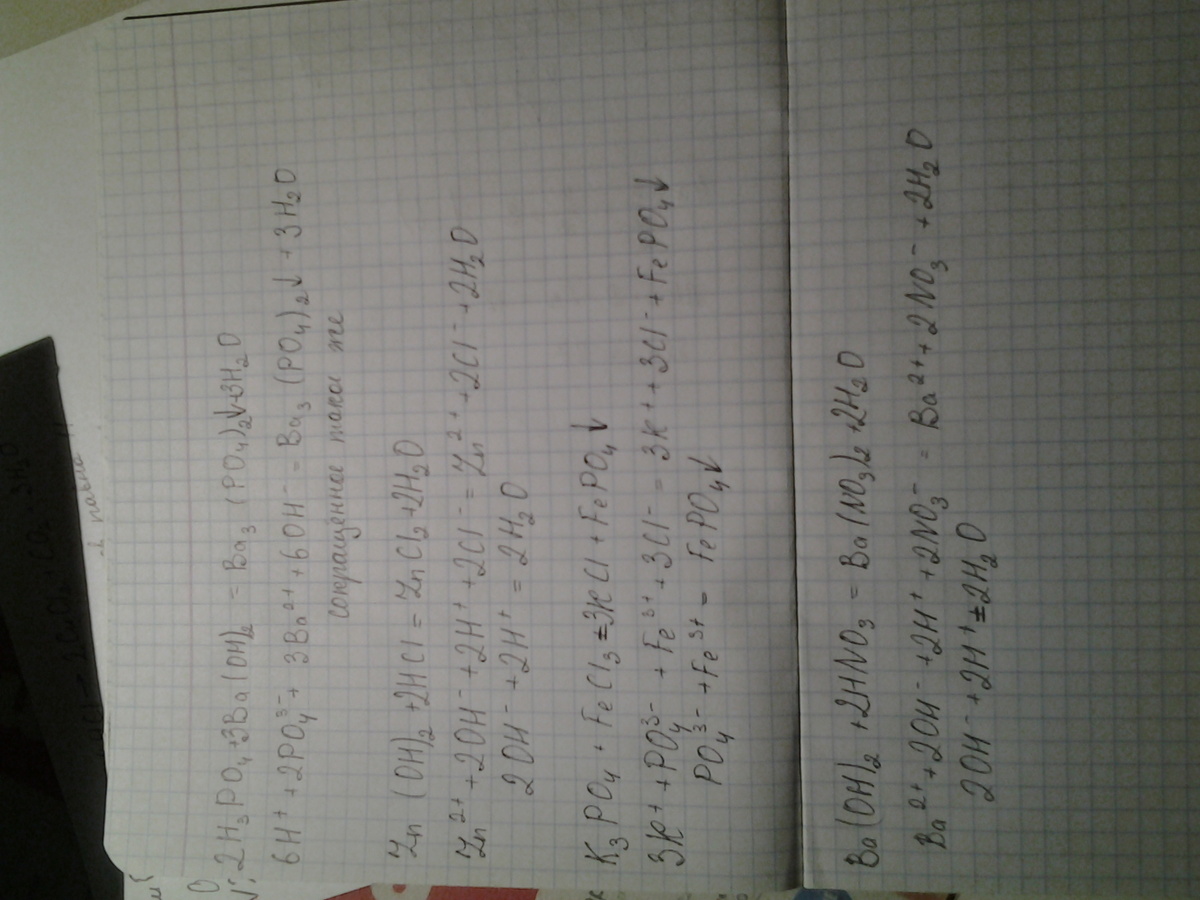 2H₃PO₄+3Ba(OH)₂ = Ba₃(PO₄)₂↓+3H₂O
6H⁺+2PO₄³⁻+3Ba²⁺+6OH⁻=Ba₃(PO₄)₂↓+3H₂O
сокращённое такое же
Zn(OH)₂+2HCl=ZnCl₂+2H₂O
Zn²⁺+2OH⁻+2H⁺+2Cl⁻=Zn²⁺+2Cl⁻+2H₂O
2OH⁻+2H⁺=2H₂O
K₃PO₄+FeCl₃=3KCl+FePO₄↓
3K⁺+PO₄³⁻+Fe³⁺+3Cl⁻=3K⁺+3Cl⁻+FePO₄↓
PO₄³⁻+Fe³⁺=FePO₄↓
Ba(OH)₂+2HNO₃=Ba(NO₃)₂+2H₂O
Ba²⁺+2OH⁻+2H⁺+2NO₃⁻=Ba²⁺+2NO₃⁻+2H₂O
2OH⁻+2H⁺=2H₂O